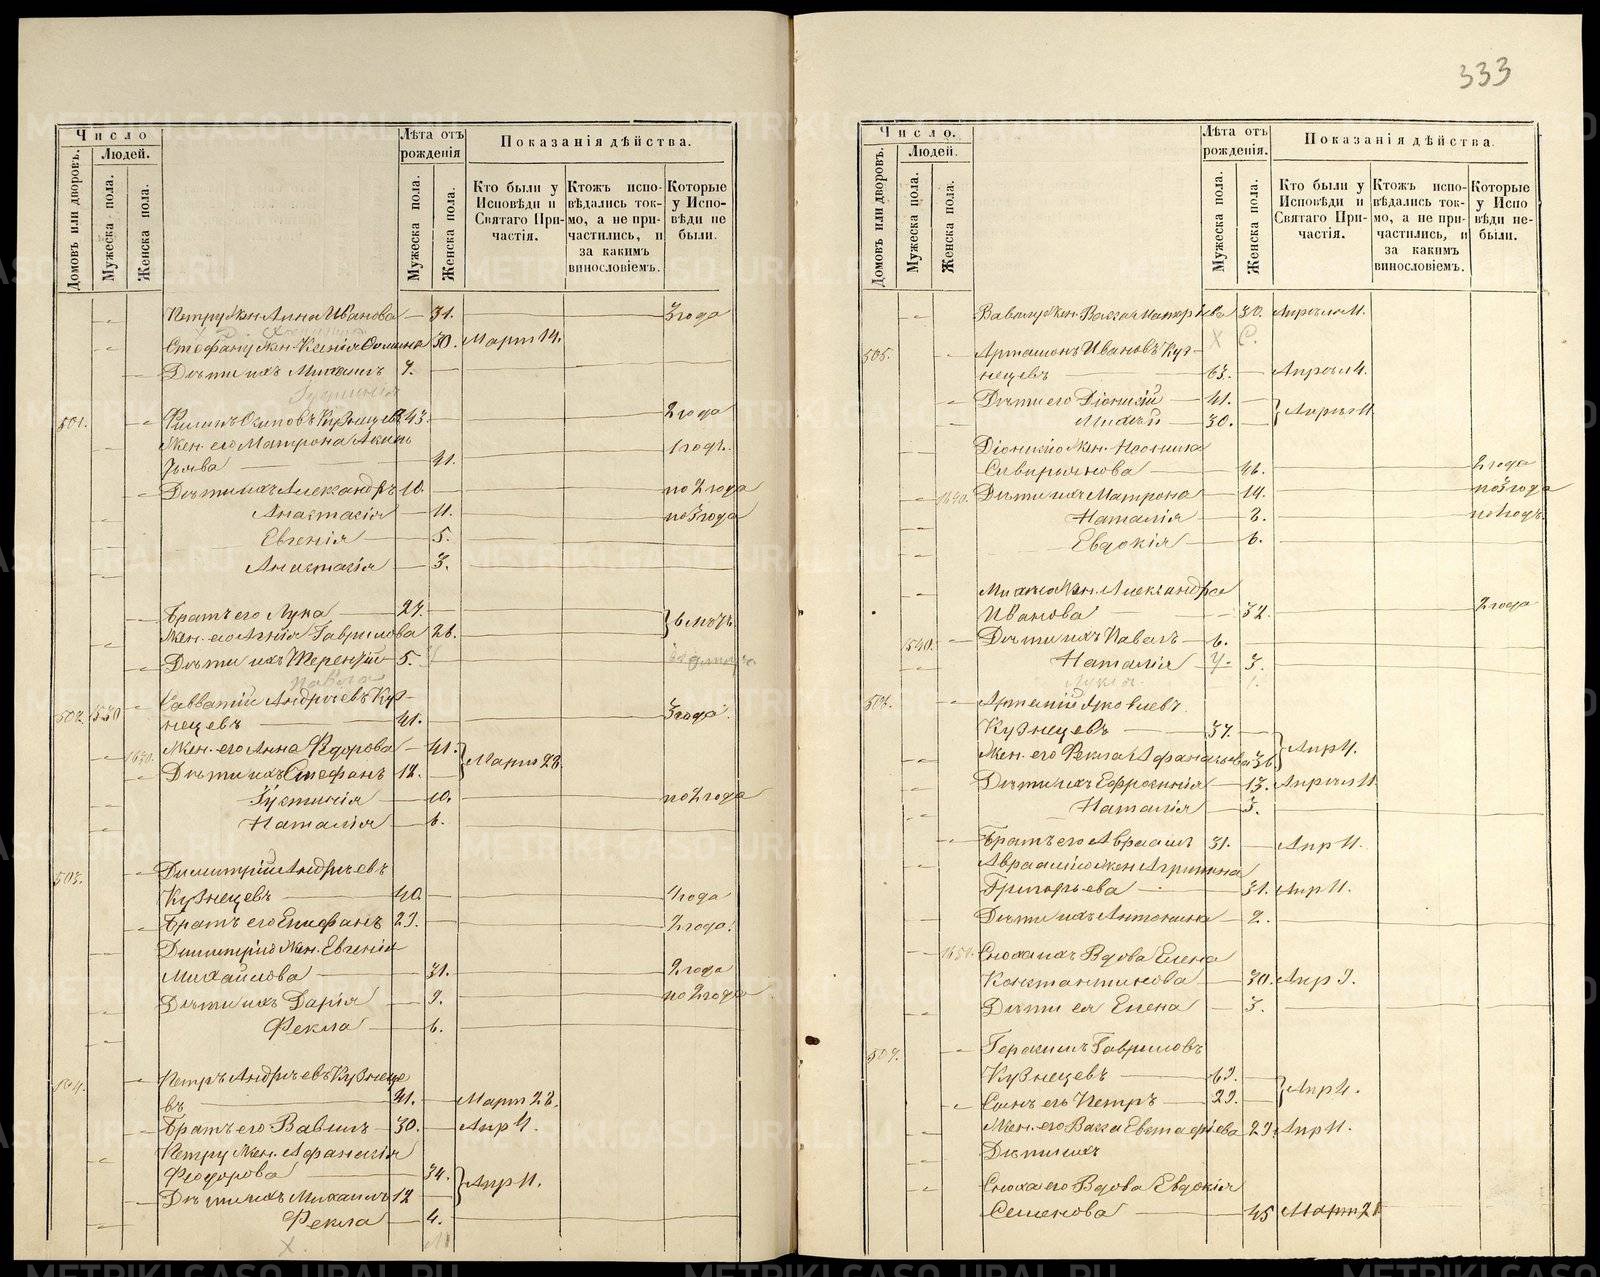 333
Число
Людей.
Домовъ или дворовъ.
Мужеска пола.
Женска пола.
Лѣта отъ рожденія
Мужеска пола.
Женска пола.
Показанія дѣйства.
Кто были у Исповѣди и Святаго Причастія.
Ктожъ исповѣдались токмо, а не причастились, и за какимъ винословіемъ.
Которые у Исповѣди не были.
Петру жен. Анна Иванова — 31. 3 года
Стефану жен. Ксенія 30. Март 14.
Дѣти ихъ Михаилъ 7.
501. Филипъ Осиповъ Кузнецовъ 43. 2 года
Жен. его Матрона
41. 1 годъ.
Дѣти ихъ Александръ 10. по 2 года
Анастасія — 11. по 3 года
Евгенія — 5.
Анастасія — 3.
Братъ его Лука — 27.
Жен. его Гаврилова 26.
Дѣти ихъ Терентій 5.
502. 1530 Савватій Андреевъ Куз-
нецевъ — 41. 3 года.
1630. Жен. его Анна Федорова — 41.
Дѣти ихъ Стефанъ 12. — Март 28.
Іустинія — 10. по 2 года
Наталія — 6.
503. Димитрій Андреевъ
Кузнецевъ — 40. 4 года
Братъ его Епифанъ 29. 2 года.
Димитрію жен. Евгенія
Михайлова — 31. 2 года
Дѣти ихъ Дарія — 9. по 2 года
Фекла — 6.
504. Петръ Андреевъ Кузнеце
въ — 41. — Март 28.
Братъ его Вавилъ — 30. — Апр 4.
Петру жен. Афанасія
Феодорова — 34.
Дѣти ихъ Михаилъ 12 — Апр 11.
Фекла — 4.
Число.
Людей.
Домовъ или дворовъ.
Мужеска пола.
Женска пола.
Лѣта отъ рожденія.
Мужеска пола.
Женска пола.
Показанія дѣйства.
Кто были у Исповѣди и Святаго Причастія.
Ктожъ исповѣдались токмо, а не причастились, и за какимъ винословіемъ.
Которые у Исповѣди не были.
Вавилу жен. Васса 30. Апрѣля 11.
505. Артамонъ Ивановъ Куз-
нецевъ — 63. — Апрѣл 4.
Дѣти его Діонисій — 41.
Михей — 30. — Апрѣл 11
Діонисію жен.
Сивирьянова — 46. 2 года
1640. Дѣти ихъ Матрона — 14. по 3 года
Наталія — 8. по 1 годъ.
Евдокія — 6.
Михею жен. Александра
Иванова — 32. 2 года
1540. Дѣти ихъ Павелъ — 6.
Наталія — 3.
506. Артемій Яковлевъ
Кузнецевъ — 37. —
Жен. его Фекла Афанасьева 36 Апр 4.
Дѣти ихъ Ефросинія — 13. Апрѣл 11
Наталія — 3.
Братъ его Авраамъ 31. — Апр 11.
Авраамію жен. Агрипина
Григорьева — 31. Апр 11.
Дѣти ихъ Антонина — 2.
1650. Сноха ихъ Вдова Елена
Константинова — 30. Апр 9.
Дѣти ея Елена — 3.
507. Герасимъ Гавриловъ
Кузнецевъ — 69.
Сынъ его Петръ — 29. — Апр 4.
Жен. его Васса Евстафіева 29. Апр 11.
Дѣти ихъ
Сноха его Вдова Евдокія
Семенова — 45 Март 21
METRIKI.GASO-URAL.RU